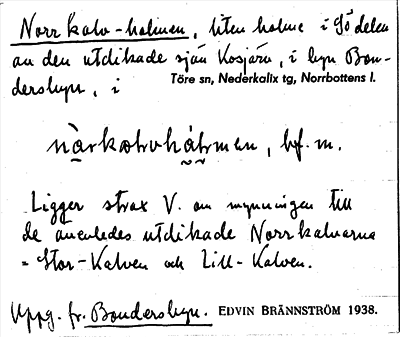 Norrkalv-holmen, liten holme i sö delen
av den utdikade sjön Kosjärv, i byn Bon-
dersbyn, i
Töre sn, Nederkalix tg, Norrbottens l.
bf. m.
Ligger strax V. om mynningen till
de ävenledes utdikade Norrkalvarna
= Stor-Kalven och Lill-Kalven.
Uppg. fr. Bondersbyn. EDVIN BRÄNNSTRÖM 1938.